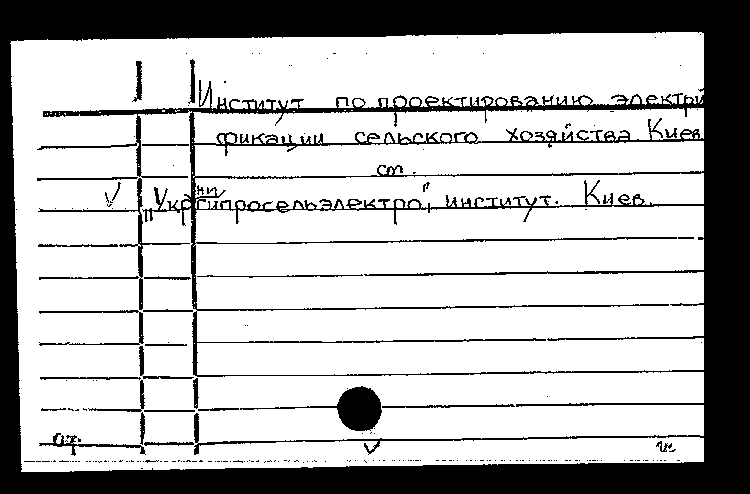 Институт по проектированию электри
фикации сельского хозяйства Киев
см.
V „Укргнипросельэлектро", институт. Киев.
V